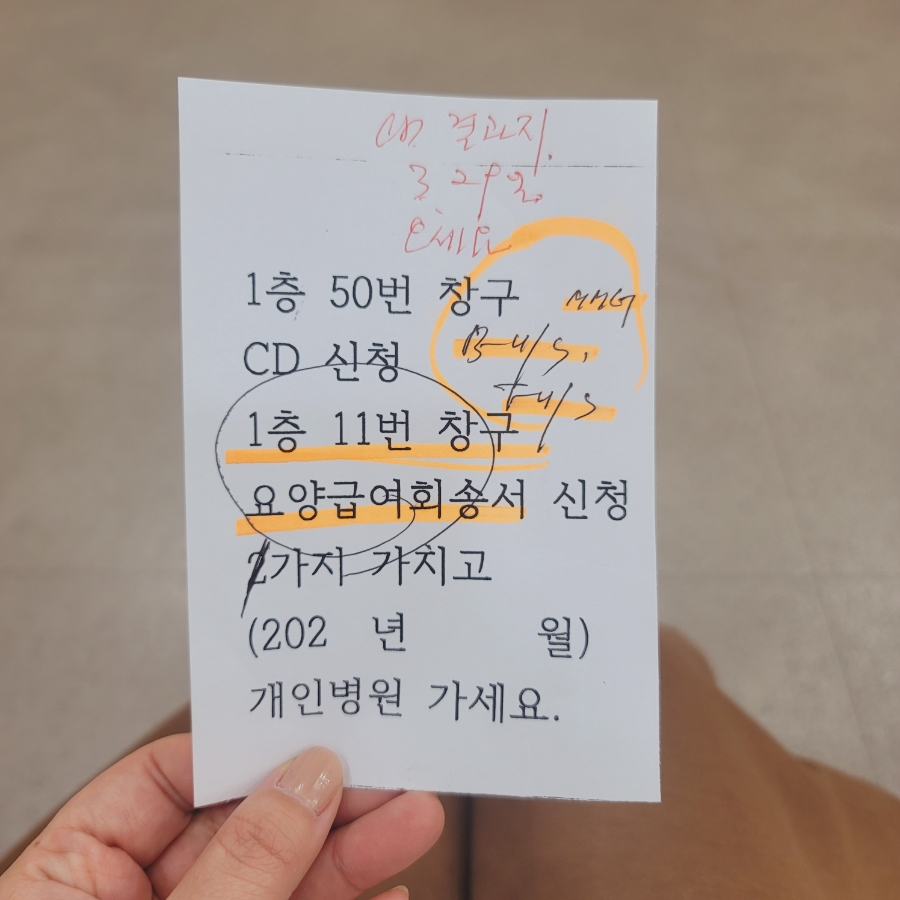 CD 결과지.
3 29일
오세요
1층 50번 창구 MMG
CD 신청 B-u/s,
T-u/s
1층 11번 창구
요양급여회송서 신청
2가지 가치고
(202 년 월)
개인병원 가세요.